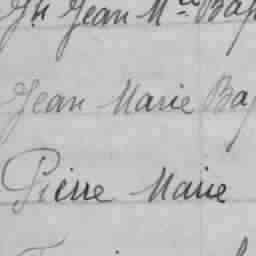 Jh Jean Mce Bap
Jean Marie Bap
Pierre Marie